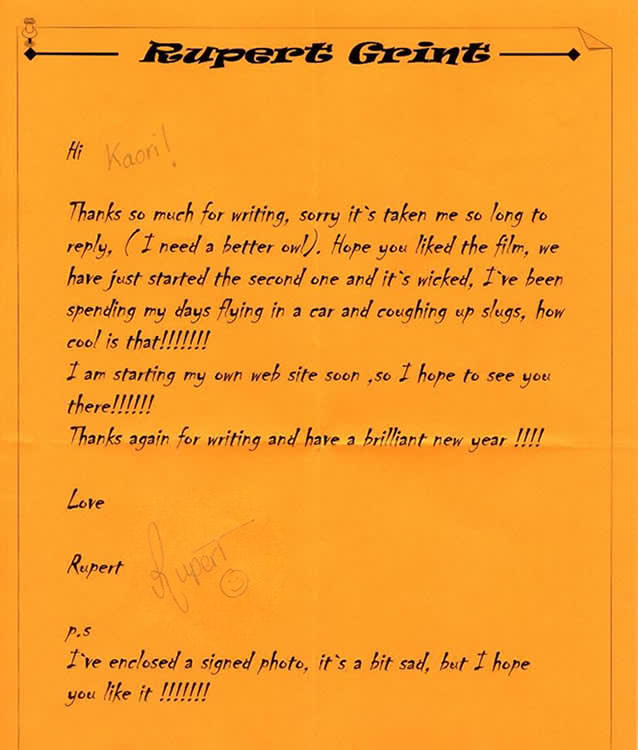 Rupert Grint
Hi Kaori!
Thanks so much for writing, sorry it`s taken me so long to
reply, ( I need a better owl). Hope you liked the film, we
have just started the second one and it`s wicked, I`ve been
spending my days flying in a car and coughing up slugs, how
cool is that!!!!!!!
I am starting my own web site soon ,so I hope to see you
there!!!!!!
Thanks again for writing and have a brilliant new year !!!!
Love
Rupert Rupert
p.s
I`ve enclosed a signed photo, it`s a bit sad, but I hope
you like it !!!!!!!